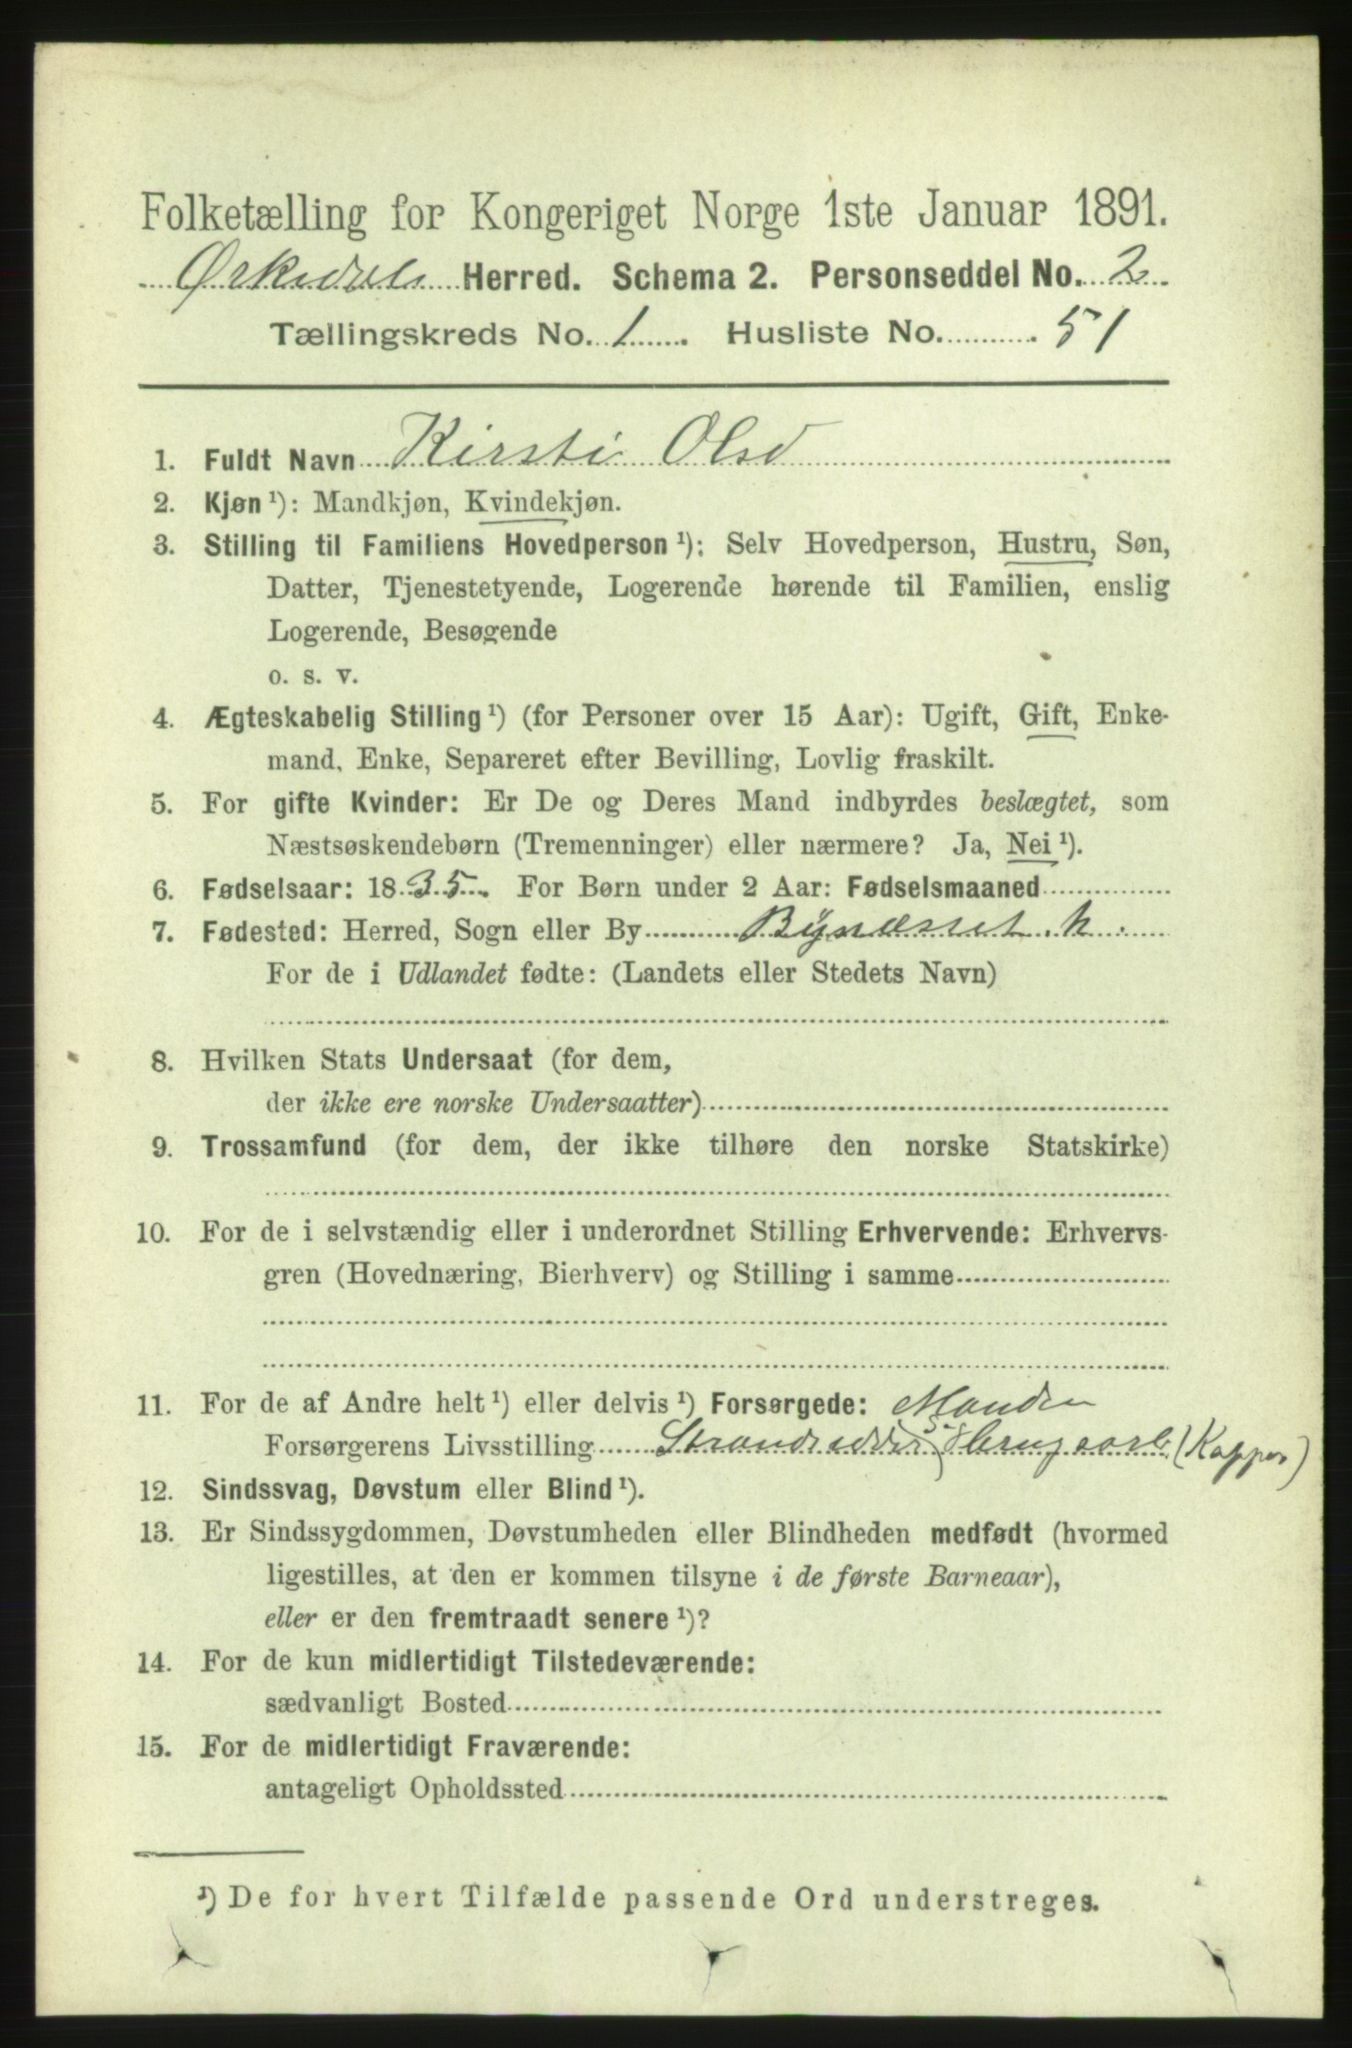 Folketælling for Kongeriget Norge 1ste Januar 1891.
Ørkedals Herred. Schema 2. Personseddel No. 2
Tællingskreds No. 1. Husliste No. 51
1. Fuldt Navn Kirsti Olsd
2. Kjøn ¹): Mandkjøn, Kvindekjøn.
3. Stilling til Familiens Hovedperson ¹): Selv Hovedperson, Hustru, Søn,
Datter, Tjenestetyende, Logerende hørende til Familien, enslig
Logerende, Besøgende
o. s. v.
4. Ægteskabelig Stilling ¹) (for Personer over 15 Aar): Ugift, Gift, Enke-
mand, Enke, Separeret efter Bevilling, Lovlig fraskilt.
5. For gifte Kvinder: Er De og Deres Mand indbyrdes beslægtet, som
Næstsøskendebørn (Tremenninger) eller nærmere? Ja, Nei ¹).
6. Fødselsaar: 1835. For Børn under 2 Aar: Fødselsmaaned
7. Fødested: Herred, Sogn eller By Bynæsset.
For de i Udlandet fødte: (Landets eller Stedets Navn)
8. Hvilken Stats Undersaat (for dem,
der ikke ere norske Undersaatter)
9. Trossamfund (for dem, der ikke tilhøre den norske Statskirke)
10. For de i selvstændig eller i underordnet Stilling Erhvervende: Erhvervs-
gren (Hovednæring, Bierhverv) og Stilling i samme
11. For de af Andre helt ¹) eller delvis ¹) Forsørgede: Manden
Forsørgerens Livsstilling Strandsidder
12. Sindssvag, Døvstum eller Blind ¹).
13. Er Sindssygdommen, Døvstumheden eller Blindheden medfødt (hvormed
ligestilles, at den er kommen tilsyne i de første Barneaar),
eller er den fremtraadt senere ¹)?
14. For de kun midlertidigt Tilstedeværende:
sædvanligt Bosted
15. For de midlertidigt Fraværende:
antageligt Opholdssted
¹) De for hvert Tilfælde passende Ord understreges.